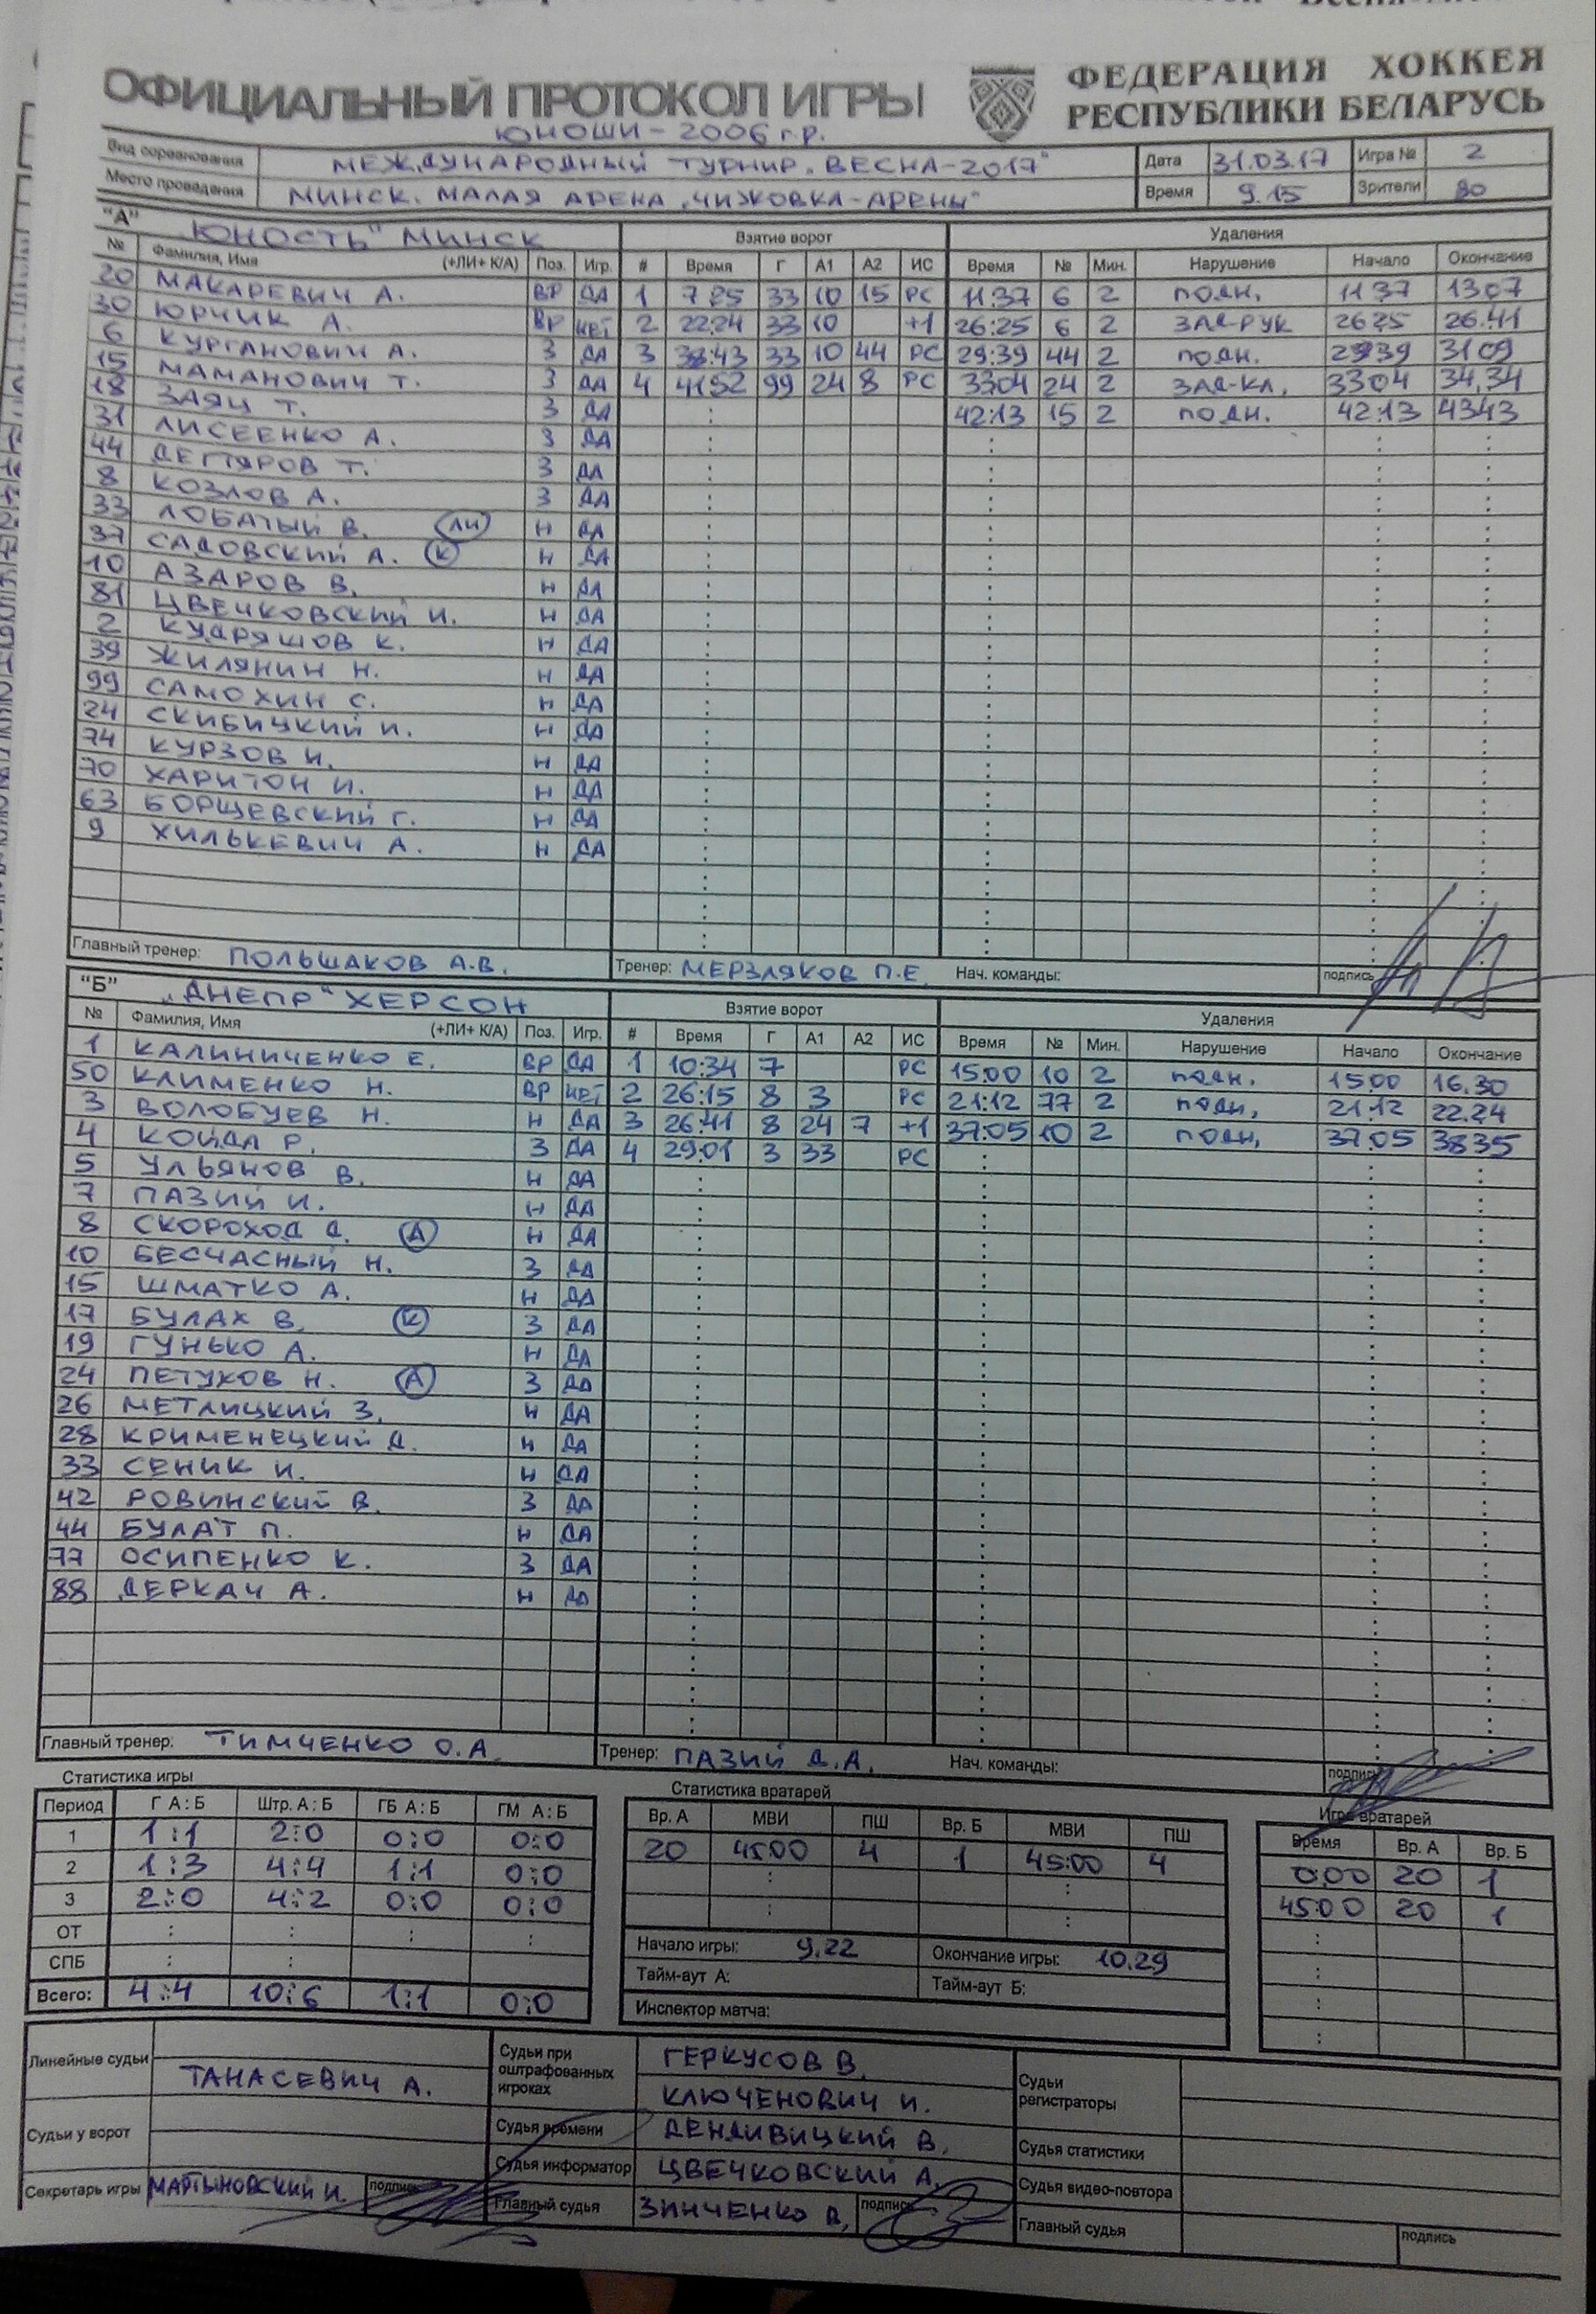 ОФИЦИАЛЬНЫЙ ПРОТОКОЛ ИГРЫ
ФЕДЕРАЦИЯ ХОККЕЯ
РЕСПУБЛИКИ БЕЛАРУСЬ
ЮНОШИ - 2006 г.р.
Вид соревнования МЕЖДУНАРОДНЫЙ ТУРНИР „ВЕСНА-2017" Дата 31.03.17 Игра № 2
Место проведения МИНСК. МАЛАЯ АРЕНА „ЧИЖОВКА-АРЕНЫ" Время 9.15 Зрители 80
"А" „ЮНОСТЬ" МИНСК Взятие ворот Удаления
№ Фамилия, Имя (+ЛИ+ К/А) Поз. Игр. # Время Г А1 А2 ИС Время № Мин. Нарушение Начало Окончание
20 МАКАРЕВИЧ А. ВР ДА 1 7:25 33 10 15 РС 11:37 6 2 ПОДН. 11 37 13 07
30 ЮРЧИК А. ВР НЕТ 2 22:24 33 10 +1 26:25 6 2 ЗАД-РУК 26 25 26.41
6 КУРГАНОВИЧ А. З ДА 3 38:43 33 10 44 РС 29:39 44 2 ПОДН. 29 39 31 09
15 МАМАНОВИЧ Т. З ДА 4 41:52 99 24 8 РС 33 04 24 2 ЗАД-КЛ. 33 04 34.34
18 ЗАЯЦ Т. З ДА 42:13 15 2 ПОДН. 42:13 43 43
31 ЛИСЕЕНКО А. З ДА
44 ДЕГТЯРОВ Т. З ДА
8 КОЗЛОВ А. З ДА
33 ЛОБАТЫЙ В. ЛИ Н ДА
37 САДОВСКИЙ А. К Н ДА
10 АЗАРОВ В. Н ДА
81 ЦВЕЧКОВСКИЙ И. Н ДА
2 КУДРЯШОВ К. Н ДА
39 ЖИЛЯНИН Н. Н ДА
99 САМОХИН С. Н ДА
24 СКИБИЦКИЙ И. Н ДА
74 КУРЗОВ И. Н ДА
70 ХАРИТОН И. Н ДА
63 БОРЩЕВСКИЙ Г. Н ДА
9 ХИЛЬКЕВИЧ А. Н ДА
Главный тренер: ПОЛЬШАКОВ А.В. Тренер: МЕРЗЛЯКОВ П.Е. Нач. команды: подпись
"Б" „ДНЕПР" ХЕРСОН Взятие ворот Удаления
№ Фамилия, Имя (+ЛИ+ К/А) Поз. Игр. # Время Г А1 А2 ИС Время № Мин. Нарушение Начало Окончание
1 КАЛИНИЧЕНКО Е. ВР ДА 1 10:34 7 РС 15:00 10 2 ПОДН. 15 00 16.30
50 КЛИМЕНКО Н. ВР НЕТ 2 26:15 8 3 РС 21:12 77 2 ПОДН. 21.12 22.24
3 ВОЛОБУЕВ Н. Н ДА 3 26:41 8 24 7 +1 37:05 10 2 ПОДН. 37 05 38 35
4 КОЙДА Р. З ДА 4 29:01 3 33 РС
5 УЛЬЯНОВ В. Н ДА
7 ПАЗИЙ И. Н ДА
8 СКОРОХОД Д. А Н ДА
10 БЕСЧАСНЫЙ Н. З ДА
15 ШМАТКО А. Н ДА
17 БУЛАХ В. К З ДА
19 ГУНЬКО А. Н ДА
24 ПЕТУХОВ Н. А З ДА
26 МЕТЛИЦКИЙ З. Н ДА
28 КРИМЕНЕЦКИЙ Д. Н ДА
33 СЕНИК И. Н ДА
42 РОВИНСКИЙ В. З ДА
44 БУЛАТ П. Н ДА
77 ОСИПЕНКО К. З ДА
88 ДЕРКАЧ А. Н ДА
Главный тренер: ТИМЧЕНКО О.А. Тренер: ПАЗИЙ Д.А. Нач. команды: подпись
Статистика игры Статистика вратарей Игра вратарей
Период Г А : Б Штр. А : Б ГБ А : Б ГМ А : Б Вр. А МВИ ПШ Вр. Б МВИ ПШ Время Вр. А Вр. Б
1 1:1 2:0 0:0 0:0 20 45:00 4 1 45:00 4 0:00 20 1
2 1:3 4:4 1:1 0:0 45:00 20 1
3 2:0 4:2 0:0 0:0
ОТ : : : :
СПБ : :
Начало игры: 9.22 Окончание игры: 10.29
Всего: 4:4 10:6 1:1 0:0 Тайм-аут А: Тайм-аут Б:
Инспектор матча:
Линейные судьи ТАНАСЕВИЧ А. Судьи при оштрафованных игроках ГЕРКУСОВ В. Судьи регистраторы
КЛЮЧЕНОВИЧ И.
Судьи у ворот Судья времени ДЕНДИВИЦКИЙ В. Судья статистики
Судья информатор ЦВЕЧКОВСКИЙ А. Судья видео-повтора
Секретарь игры МАРТЫНОВСКИЙ И. подпись Главный судья ЗИНЧЕНКО В. подпись Главный судья подпись